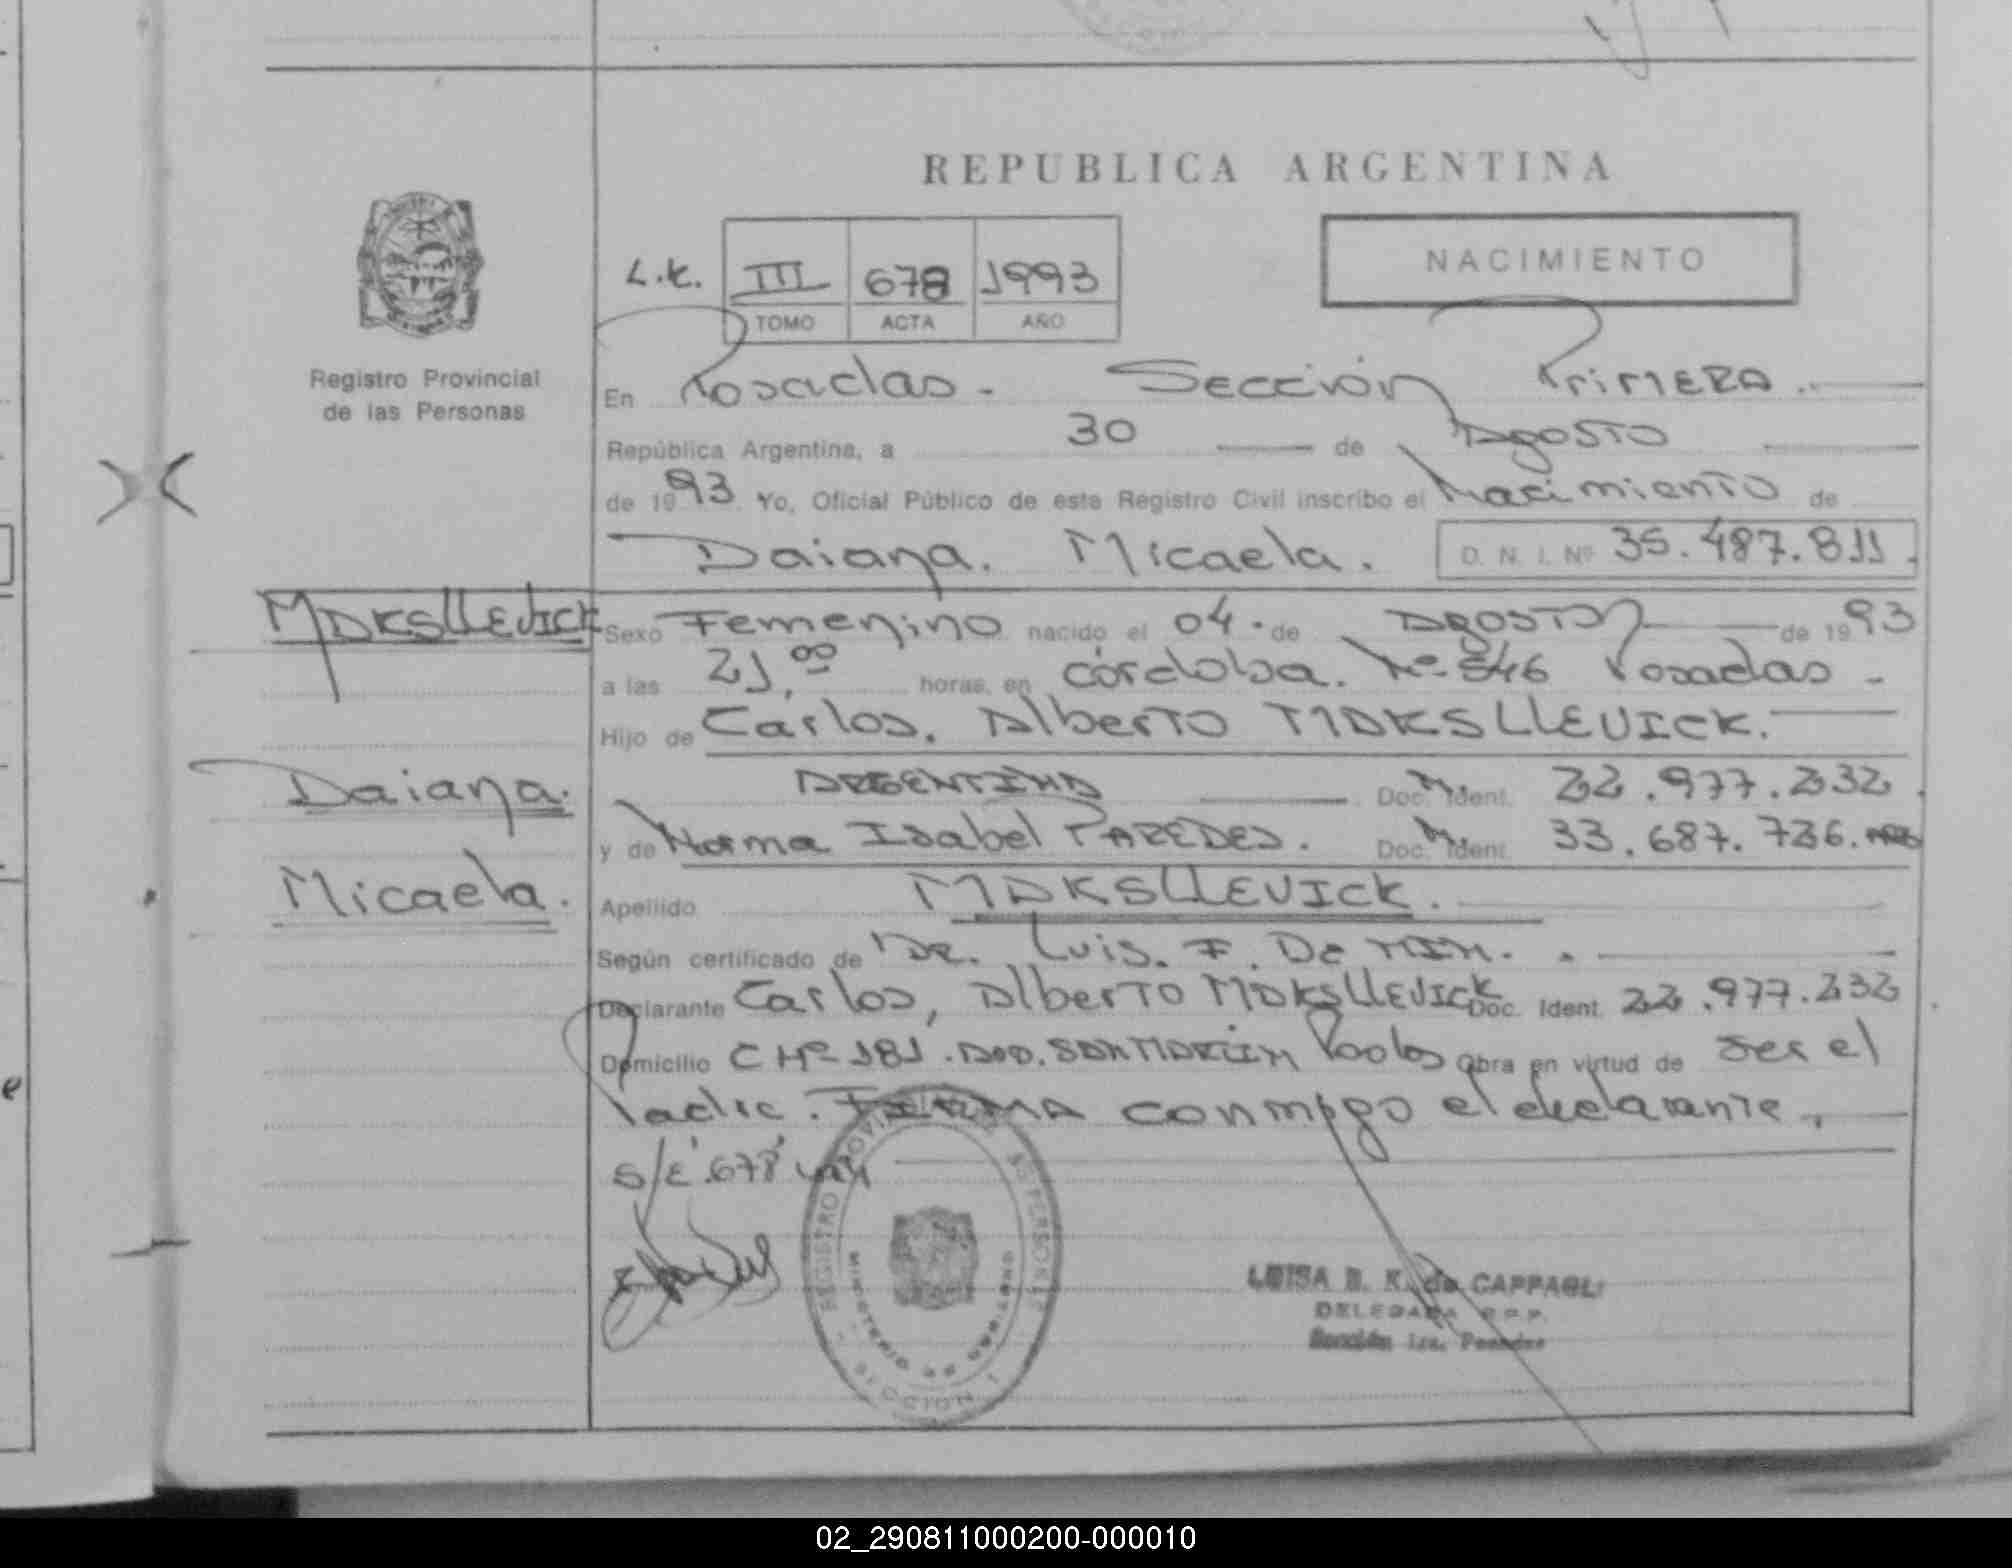 REPUBLICA ARGENTINA
NACIMIENTO
L.K. III 678 1993
TOMO ACTA AÑO
Registro Provincial
de las Personas
En Posadas - Sección Primera.
República Argentina, a 30 de Agosto
de 1993 Yo, Oficial Público de este Registro Civil inscribo el Nacimiento de
Daiana. Micaela. D. N. I. Nº 35.487.811.
MAKSLLEVICK
Sexo Femenino nacido el 04. de Agosto de 1993
a las 21,00 horas, en córdoba. Nº 546 Posadas -
Hijo de Carlos. Alberto MAKSLLEVICK.
Daiana.
ARGENTINA Doc. Ident. 22.977.232.
y de Norma Isabel PAREDES. Doc. Ident. 33.687.736.
Micaela.
Apellido MAKSLLEVICK.
Según certificado de DR. Luis. F. De
Declarante Carlos, Alberto MAKSLLEVICK Doc. Ident. 22.977.232
Domicilio CH Nº 181. Obra en virtud de ser el
Padre. FIRMA conmigo el declarante.
S/E. 678
REGISTRO PROVINCIAL DE LAS PERSONAS
MINISTERIO DE GOBIERNO
SECCION 1
LUISA B. K. de CAPPAGLI
DELEGADA R.P.P.
Sección 1ra. Posadas
02_290811000200-000010